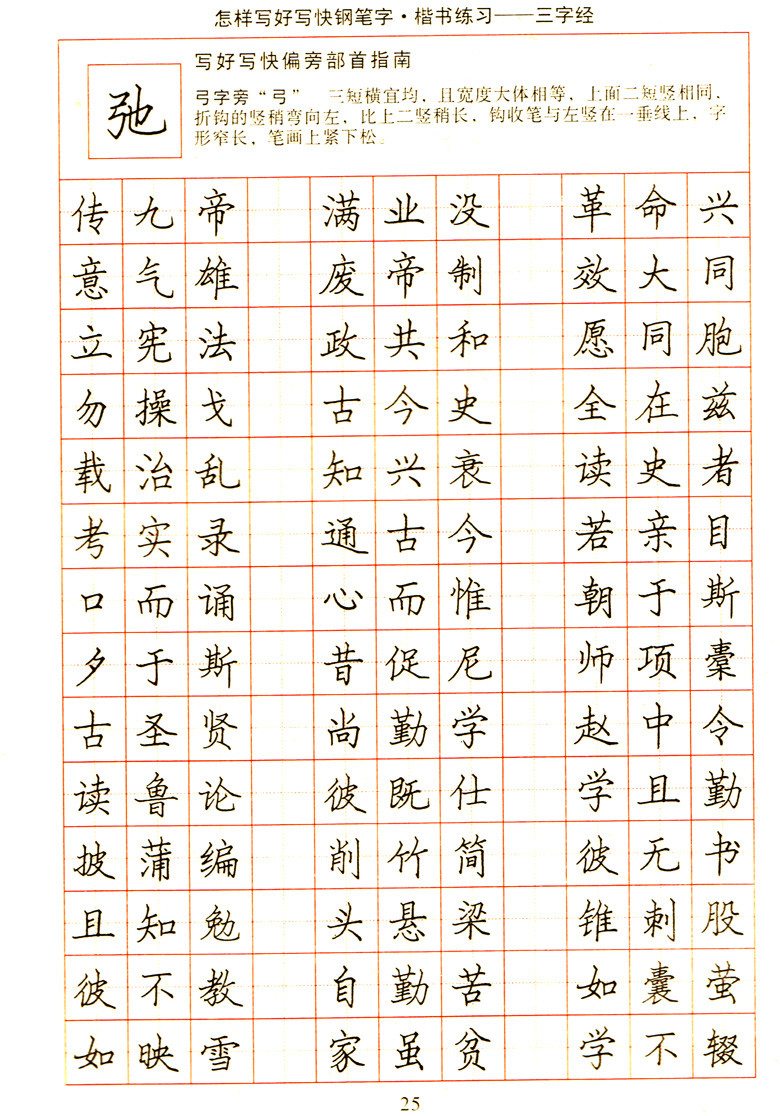 怎样写好写快钢笔字·楷书练习——三字经
写好写快偏旁部首指南
弛
弓字旁“弓” 三短横宜均，且宽度大体相等，上面二短竖相同，
折钩的竖稍弯向左，比上二竖稍长，钩收笔与左竖在一垂线上，字
形窄长，笔画上紧下松。
传九帝 满业没 革命兴
意气雄 废帝制 效大同
立宪法 政共和 愿同胞
勿操戈 古今史 全在兹
载治乱 知兴衰 读史者
考实录 通古今 若亲目
口而诵 心而惟 朝于斯
夕于斯 昔促尼 师项橐
古圣贤 尚勤学 赵中令
读鲁论 彼既仕 学且勤
披蒲编 削竹简 彼无书
且知勉 头悬梁 锥刺股
彼不教 自勤苦 如囊萤
如映雪 家虽贫 学不辍
25